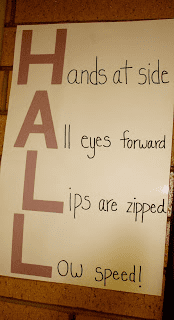 Hands at side
All eyes forward
Lips are zipped
Low speed!